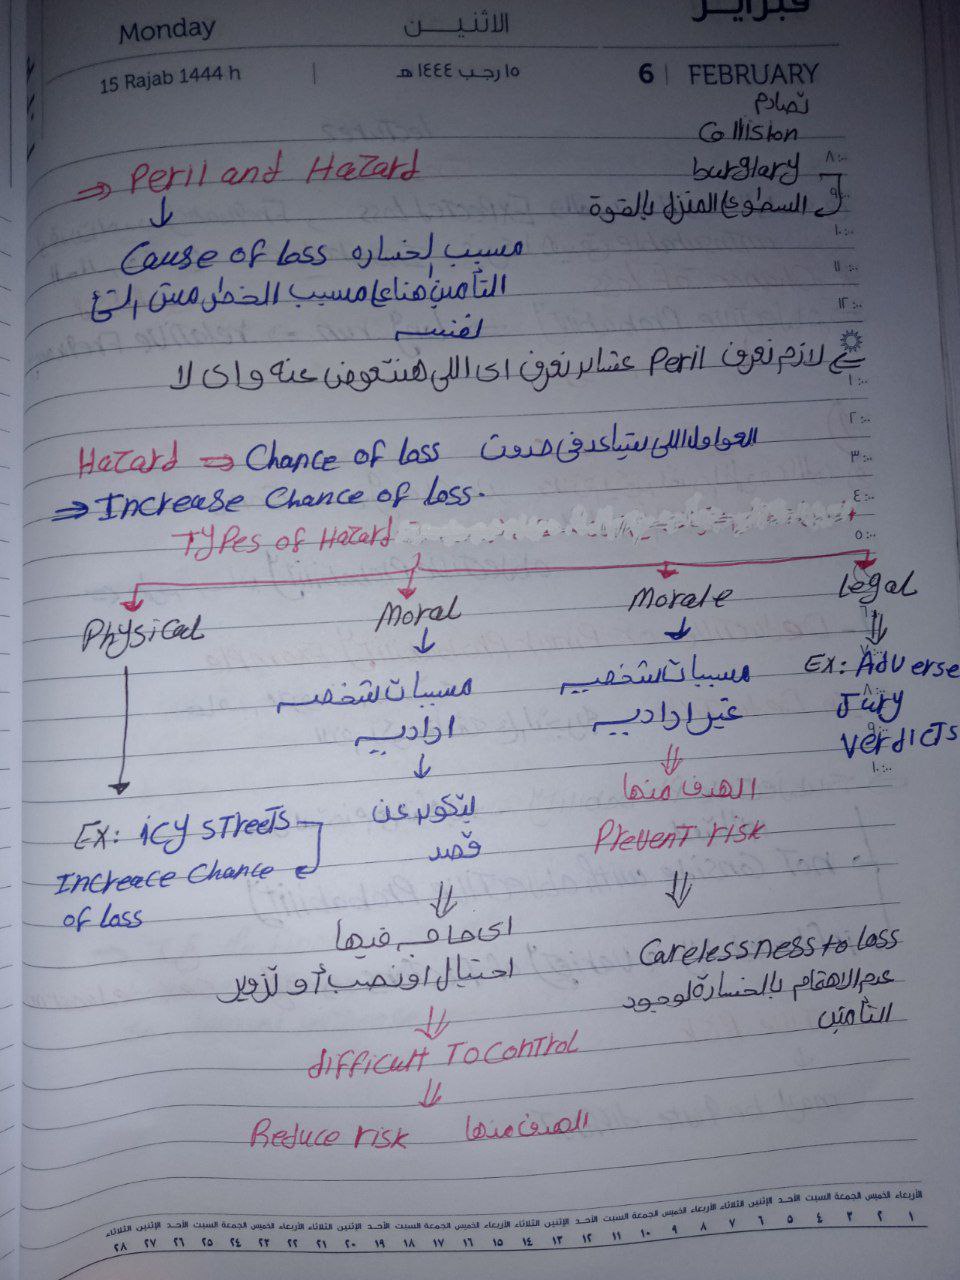 فبراير
Monday الاثنين
15 Rajab 1444 h | ١٥ رجب ١٤٤٤ هـ 6 | FEBRUARY
تصادم
Collision
burglary
السطو علي المنزل بالقوة
⇒ Peril and Hazard
↓
Cause of loss مسبب لخساره
التأمين هنا علي مسبب الخطر مش الشئ
لفنسه
لازم نعرف Peril عشان نعرف اى اللى هنتعوض عنه و اى لا
Hazard ⇒ Chance of loss العوامل اللى بتساعد فى حدوث
⇒ Increase Chance of loss.
Types of Hazard
Physical Moral Morale Legal
مسببات شخصيه
اراديه
↓
بتكون عن
قصد
⇓
اى حاجه فيها
احتيال او نصب أو تزوير
⇓
difficult To control
⇓
Reduce risk الهدف منها
مسببات شخصيه
غير اراديه
⇓
الهدف منها
Prevent risk
⇓
Carelessness to loss
عدم الاهتمام بالخسارة لوجود
التأمين
Ex: Adverse
Jury
verdicts
Ex: icy streets
Increace Chance
of loss
٨:٠٠
٩:٠٠
١٠:٠٠
١١:٠٠
١٢:٠٠
١:٠٠
٢:٠٠
٣:٠٠
٤:٠٠
٥:٠٠
٨:٠٠
٩:٠٠
١٠:٠٠
الأربعاء الخميس الجمعة السبت الأحد الإثنين الثلاثاء الأربعاء الخميس الجمعة السبت الأحد الإثنين الثلاثاء الأربعاء الخميس الجمعة السبت الأحد الإثنين الثلاثاء الأربعاء الخميس الجمعة السبت الأحد الإثنين الثلاثاء
١ ٢ ٣ ٤ ٥ ٦ ٧ ٨ ٩ ١٠ ١١ ١٢ ١٣ ١٤ ١٥ ١٦ ١٧ ١٨ ١٩ ٢٠ ٢١ ٢٢ ٢٣ ٢٤ ٢٥ ٢٦ ٢٧ ٢٨